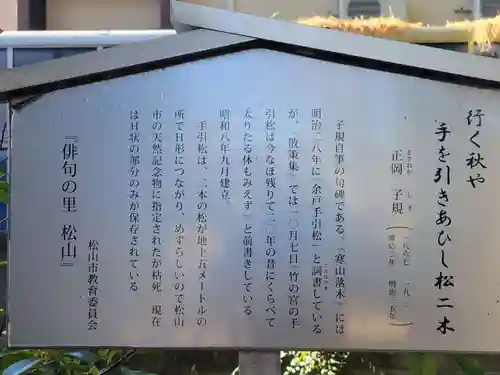 行く秋や
手を引きあひし松二木
正岡 子規
まさおか しき
(一八六七 一九〇二
慶応三年 明治三五年)
子規自筆の句碑である。『寒山落木』には
明治二八年に「余戸手引松」と詞書している
ことばがき
が、『散策集』では一〇月七日「竹の宮の手
引松は今なほ残りて二〇年の昔にくらべて
太りたる体もみえず」と前書きしている。
昭和八年九月建立。
手引松は、二本の松が地上五メートルの
所でH形につながり、めずらしいので松山
市の天然記念物に指定されたが枯死、現在
はH状の部分のみが保存されている
『俳句の里 松山』
松山市教育委員会